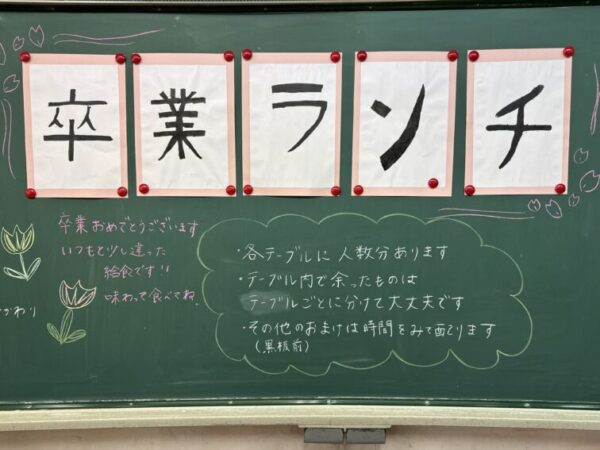 卒業ランチ
卒業おめでとうございます
いつもと少し違った
給食です!!
味わって食べてね。
かわり
・各テーブルに人数分あります
・テーブル内で余ったものは
テーブルごとに分けて大丈夫です
・その他のおまけは時間をみて配ります
(黒板前)